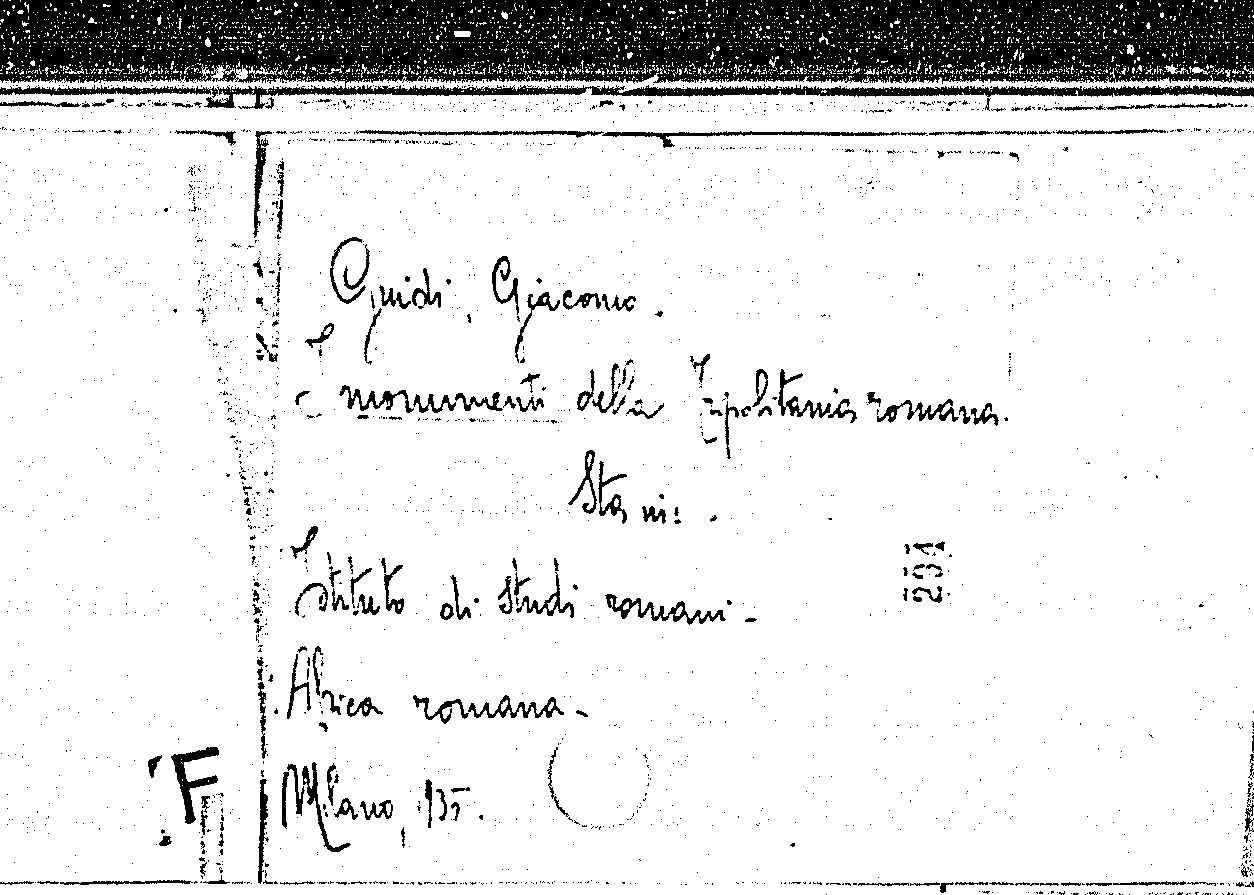 Guidi, Giacomo.
I monumenti della Tripolitania romana.
Sta in:
Istituto di studi romani -
Africa romana -
Milano, 935.
F
234